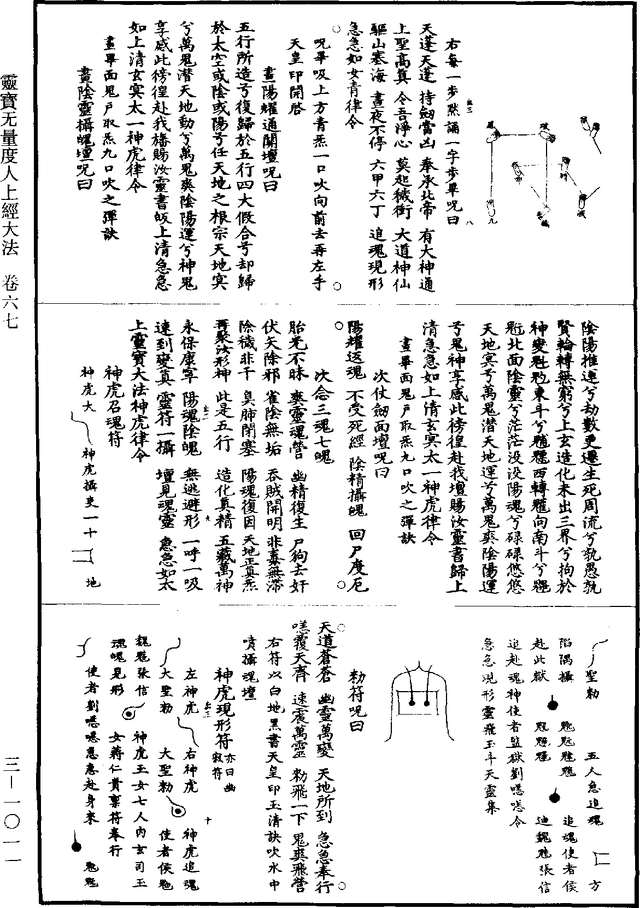 右每一步默誦一字步畢呪曰
天蓬天蓬 持劒當凶 奉承北帝 有大神通
上聖高真 令吾淨心 莫起穢衝 大道神仙
驅山塞海 晝夜不停 六甲六丁 追魂現形
急急如女青律令
呪畢吸上方青炁一口吹向前去再左手
天皇印開啓
畫陽耀通關壇呪曰
五行所造兮復歸於五行四大假合兮却歸
於太空或陰或陽兮任天地之根宗天地冥
兮萬鬼潛天地動兮萬鬼奭陰陽運兮神鬼
享感此徬徨赴我旛賜汝靈書皈上清急急
如上清玄冥太一神虎律令
畫畢面鬼戶取炁九口吹之彈訣
畫陰靈攝魄壇呪曰
陰陽推遷兮劫數更遷生死周流兮孰愚孰
賢輪轉無窮兮上玄造化未出三界兮拘於
北面陰靈兮茫茫没没陽魂兮碌碌悠悠
天地冥兮萬鬼潛天地運兮萬鬼奭陰陽運
兮鬼神享感此徬徨赴我壇賜汝靈書歸上
清急急如上清玄冥太一神虎律令
畫畢面鬼戶取炁九口吹之彈訣
次仗劒面壇呪曰
陽耀返魂 不受死經 陰精攝魄 回尸度厄
次念三魂七魄
胎光不昧 爽靈魂營 幽精復生 尸狗去奸
伏矢除邪 雀陰無垢 吞賊開明 非毒無滯
除穢非干 臭肺閉塞 陽魂復因 天地正真炁
再聚汝形神 此是五行 造化真精 五藏萬神
永保康寧 陽魂陰魄 無逃避形 一呼一吸
速到變真 靈符一攝 壇見魂靈 急急如太
上靈寶大法神虎律令
神虎召魂符
神虎大 神虎攝吏一十二 地
聖勑 五人急追魂 方
陷隅攝 追魂使者侯
赴此獄 張信
追赴魂神使者監獄劉 令
急急現形靈飛玉斗天靈集
勑符呪曰
天道蒼蒼 幽靈萬變 天地所到 急急奉行
覆天齊 速震萬靈 勑飛一下 鬼爽飛營
右符以白地黑書天皇印玉清訣吹水中
噴攝魂壇
神虎現形符 亦曰幽寂符
左神虎 右神虎 神虎追魂
大聖勑 大聖勑 使者侯
張信 神虎玉女七人內玄司玉
魂魄見形 女蔣仁賫稟符奉行
使者劉 急急赴身來
靈寶无量度人上經大法 卷六七
三－一〇一一